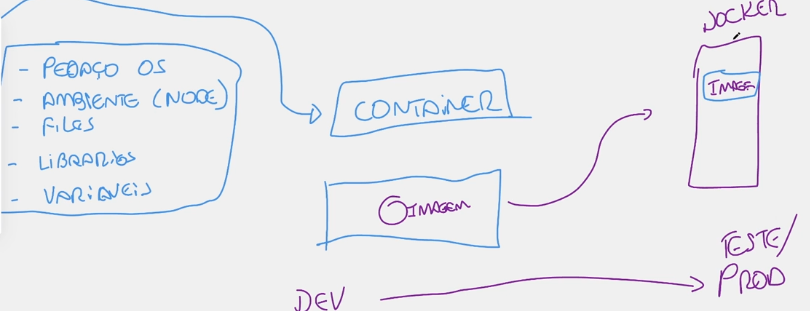 - PEDAÇO OS
- AMBIENTE (NODE)
- FILES
- LIBRARIES
- VARIÁVEIS
CONTAINER
IMAGEM
DOCKER
IMAGEM
DEV
TESTE/
PROD